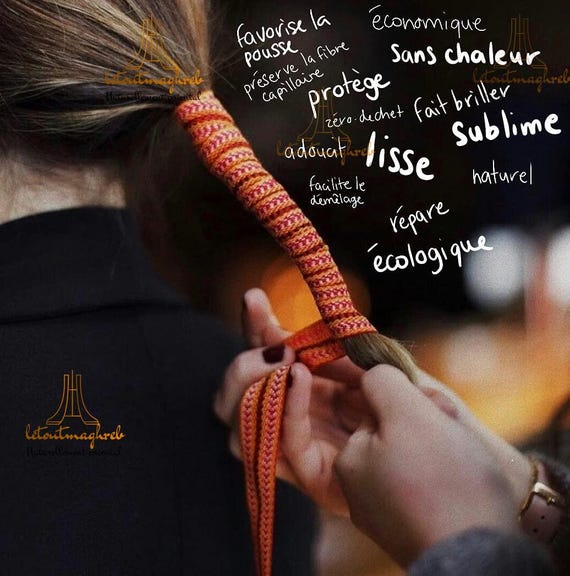 favorise la
pousse
préserve la fibre
capillaire
économique
sans chaleur
protège
zéro-dechet
fait briller
sublime
adoucit
lisse
naturel
facilite le
démêlage
répare
écologique
letoutmaghreb
letoutmaghreb
letoutmaghreb